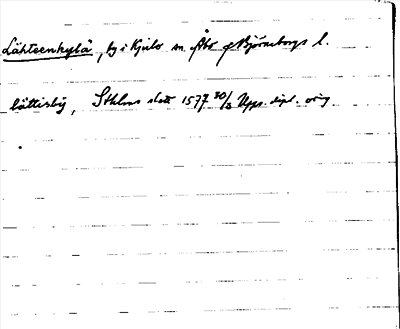 Lähteenkylä, by i Kjulo sn. Åbo o Björneborgs l.
lättisby, Sthlms slott 1577 30/3 Upps. dipl. orig